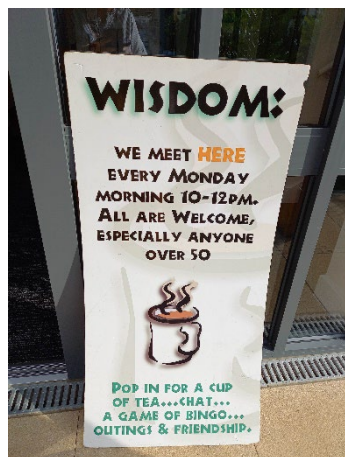 WISDOM:
WE MEET HERE
EVERY MONDAY
MORNING 10-12PM.
ALL ARE WELCOME,
ESPECIALLY ANYONE
OVER 50
POP IN FOR A CUP
OF TEA...CHAT...
A GAME OF BINGO...
OUTINGS & FRIENDSHIP.